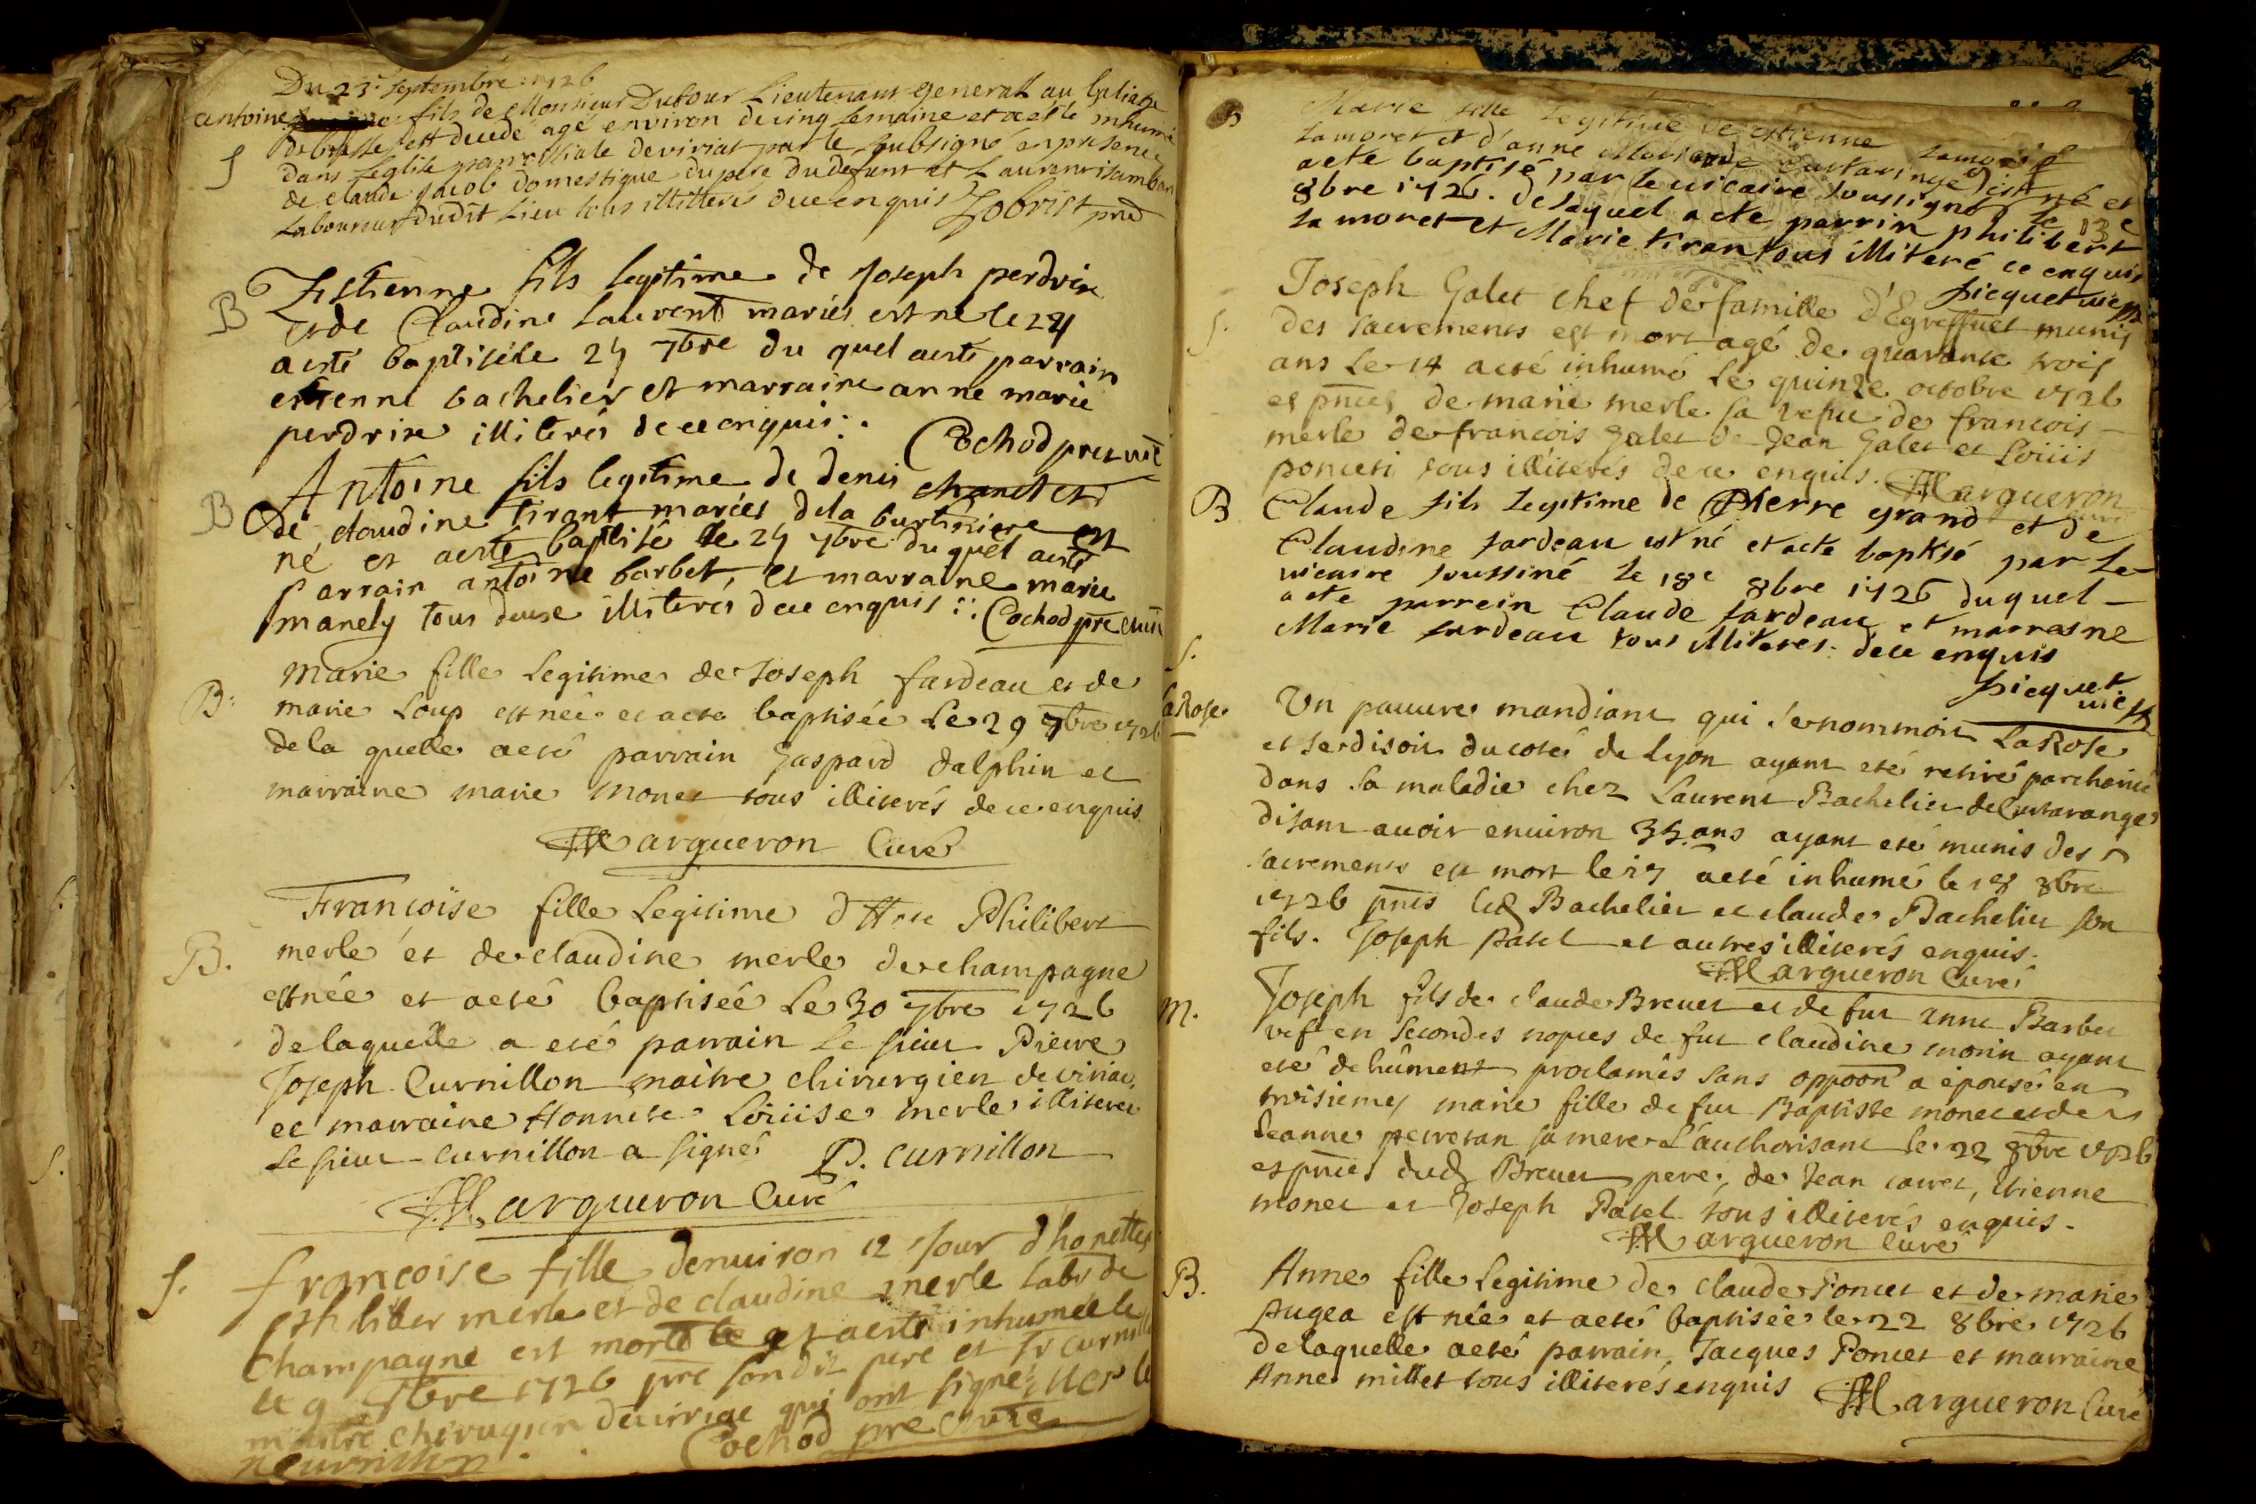 Du 23e septembre 1726
antoine fils de Monsieur Dufour Lieutenant general au
de est decedé agé environ de cinq semaine et acesté inhumé
S
dans leglise parroissiale deviriat par le subsigné en presence
de claude Jacob domestique du pere du defunt et Laurent
Laboureur dudit Lieu tous illitterés de ce enquis
B
Estienne fils legitime de Joseph perdrix
et de Claudine Laurent mariés est né le 24
a esté baptisé le 25 7bre du quel a esté parrain
estienne bachelier et marraine anne marie
perdrix illiterés de ce enquis. Cochod pretre vic
B
Antoine fils legitime de denis
de claudine tirant mariés dela burtiniere est
né et a esté baptisé le 25 7bre du quel a esté
parrain antoine barbet, et marraine marie
manely tous deux illiterés de ce enquis Cochod pre
B.
Marie fille Legitime de Joseph fardeau et de
marie Loup est née et aeté baptisée Le 29 7bre 1726
de la quelle aeté parrain Gaspard dalphin et
marraine marie Monet tous illiterés de ce enquis
Margueron Curé
B.
Françoise fille Legitime d'Hte Philibert
merle et de claudine merle de champagne
est née et aeté baptisée Le 30 7bre 1726
de laquelle a eté parrain Le sieur Pierre
Joseph Curnillon maitre chirurgien de viriac
et marraine Honnete Loüise merle illiteree
Le sieur Curnillon a signé P. curnillon
Margueron Curé
S.
francoise fille denviron 12 Jour d'honettes
philiber merle et de claudine merle labr de
Champagne est morte le et aesté inhumée le
9 1726 pre son dit pere et sr curnillon
maitre chirugien de viriac qui ont signé
Cochod pre
B
Marie fille legitime de estienne
Lamoret et d'anne Marie est né et
aeté baptisé par le vicaire soussigné le 13e
8bre 1726. de laquel a eté parrin philibert
Lamoret et Marie tiran tous illiteré ce enquis
picquet vic
S.
Joseph Galet chef de famille d'Egreffuet munis
des sacrements est mort agé de quarante trois
ans le 14 a eté inhumé Le quinze octobre 1726
es pnces de marie merle sa vefue de francois
merle de francois Galet de Jean Galet et Loüis
poncet tous illiterés de ce enquis. Margueron
B
Claude fils Legitime de Pierre grand et de
Claudine fardeau est né et aeté baptisé par Le
vicaire soussiné le 18e 8bre 1726 duquel
aeté parrein Claude fardeau et marrasne
Marie fardeau tous illiterés dece enquis
picquet vic
S.
LaRose
Un pauure mandiant qui se nommoit LaRose
et se disoit du coté de Lyon ayant eté retiré par charité
dans sa maladie chez Laurent Bachelier de Curtaringe
disant auoir enuiron 35 ans ayant eté munis des
sacrements est mort le 17 aeté inhumé le 18 8bre
1726 pnts led Bachelier et claude Bachelier son
fils. Joseph Patel et autres illiterés enquis.
Margueron Curé
M.
Joseph fils de claude Breuet et de fue anne Barbet
vef en secondes nopces de fue claudine morin ayant
eté dehûment proclamés sans oppoon a épousé en
troisiemes marie fille de fue Baptiste monet et de
Jeanne perretan sa mere L'authorisant le 22 8bre 1726
es pnces dud Breuet pere, de Jean, Etienne
monet et Joseph Patel tous illiterés enquis.
Margueron Curé
B.
Anne fille Legitime de claude Poncet et de marie
Pugea est née et aeté baptisée le 22 8bre 1726
de laquelle aeté parrain Jacques Poncet et marraine
Anne millet tous illiterés enquis Margueron Curé